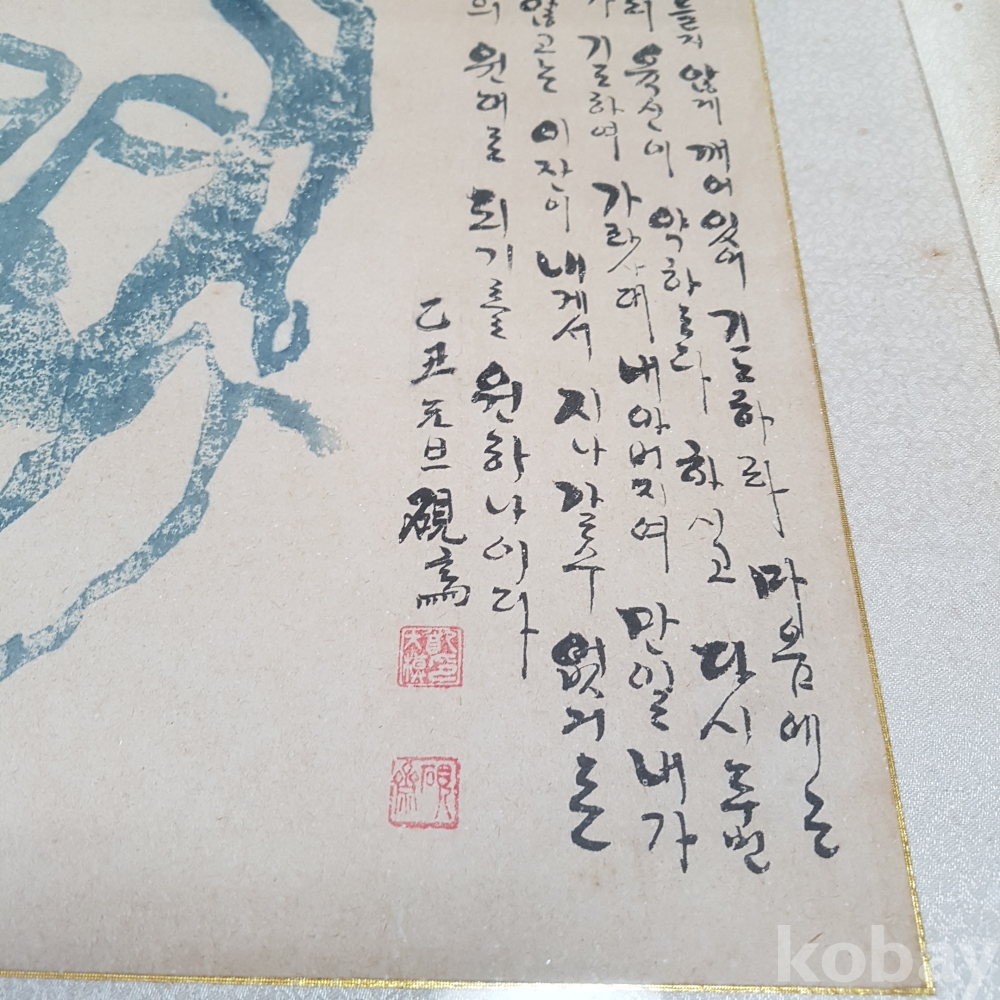 들지 않게 깨어있어 기도하라 마음에는
되 육신이 약하도다 하시고 다시 두번
기도하여 가라사대 내아버지여 만일 내가
않고는 이잔이 내게서 지나 갈수 없거든
의 원대로 되기를 원하나이다
乙丑 元旦 硯齋
鄭印天模
硯齋
kobay